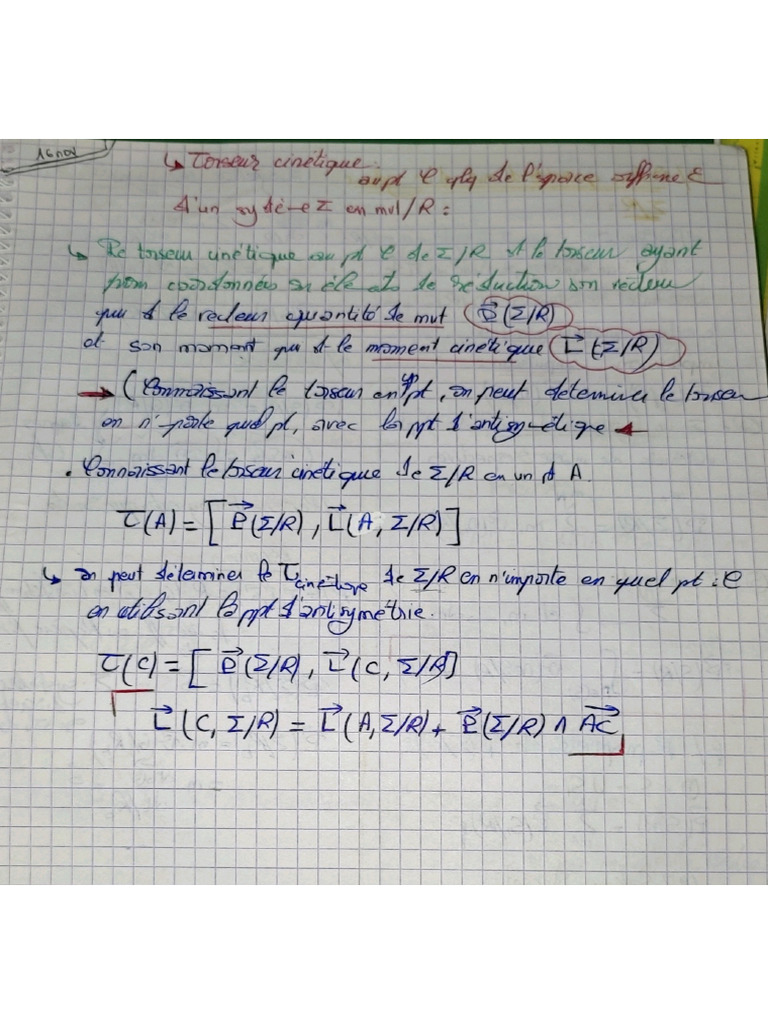 16 nov
↳ Torseur cinétique :
au pt C qlq de l'espace affine E
d'un systè-e Σ en mvt/R :
↳ Le torseur cinétique au pt C de Σ/R est le torseur ayant
pour coordonnées ou élé de réduction son vecteur
qui est le vecteur quantité de mvt P⃗(Σ/R)
et son moment qui est le moment cinétique L⃗(Σ/R)
→ (Connaissant le torseur en pt, on peut déterminer le torseur
en n'porte quel pt, avec la ppt d'antisymétique ←
• Connaissant le torseur cinétique de Σ/R en un pt A.
τ(A) = [P⃗(Σ/R), L⃗(A, Σ/R)]
↳ on peut déterminer le τ cinétique de Σ/R en n'importe en quel pt : C
en utilisant la ppt d'antisymétrie.
τ(C) = [P⃗(Σ/R), L⃗(C, Σ/R)]
L⃗(C, Σ/R) = L⃗(A, Σ/R) + P⃗(Σ/R) ∧ AC⃗